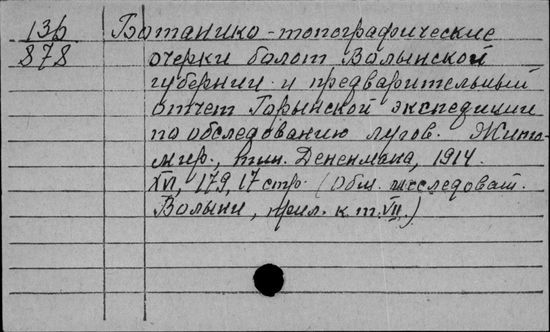 13б Ботанико-топографические
878 очерки болот Волынской
губернии и предварительный
отчет Горынской экспедиции
по обследованию лугов. Жито-
мир, тип. Дененмана, 1914.
XVI, 179, 17 стр. (Общ. исследоват.
Волыни, прил. к т. VII.)